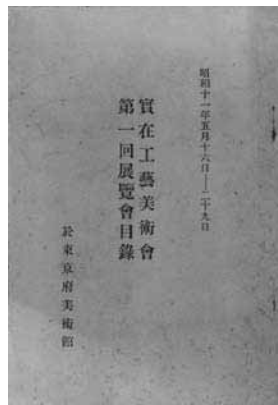 昭和十一年五月十六日——二十九日
實在工藝美術會
第一回展覽會目錄
於東京府美術館